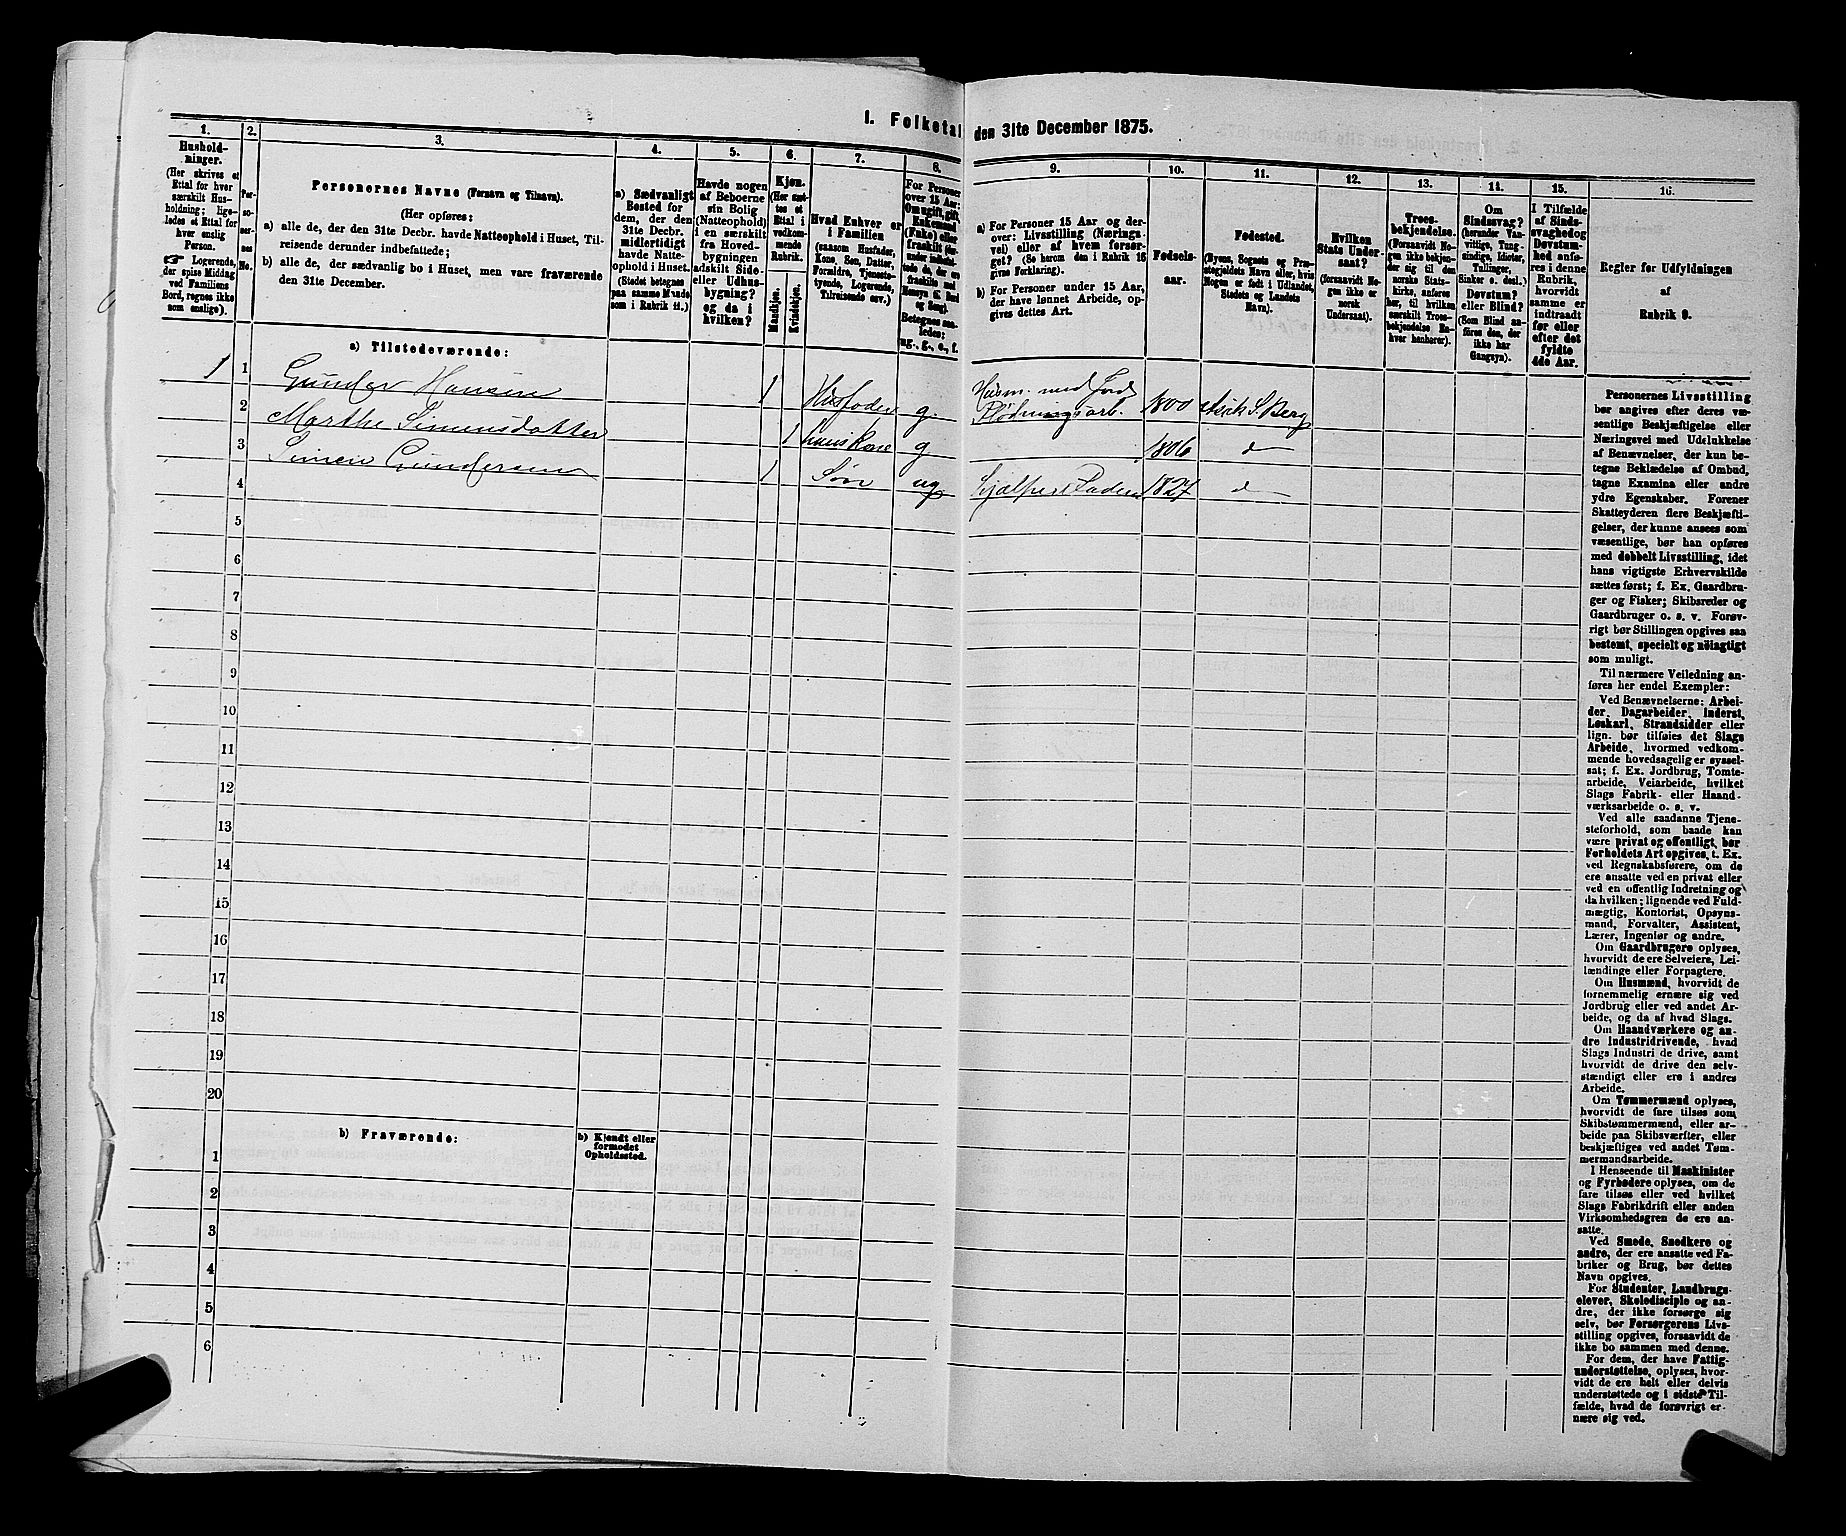 I. Folketal
den 31te December 1875.
1.
Hushold-
ninger.
(Her skrives et
Ettal for hver
særskilt Hus-
holdning; lige-
ledes et Ettal for
hver enslig
Person.
☞ Logerende,
der spise Middag
ved Familiens
Bord, regnes ikke
som enslige).
2.
Per-
so-
ner-
nes
No.
3.
Personernes Navne (Fornavn og Tilnavn).
(Her opføres:
a) alle de, der den 31te Decbr. havde Natteophold i Huset, Til-
reisende derunder indbefattede;
b) alle de, der sædvanlig bo i Huset, men vare fraværende
den 31te December.
4.
a) Sædvanligt
Bosted for
dem, der den
31te Decbr.
midlertidigt
havde Natte-
ophold i Huset.
(Stedet betegnes
paa samme Maade
som i Rubrik 11.)
5.
Havde nogen
af Beboerne
sin Bolig
(Natteophold)
i en særskilt
fra Hoved-
bygningen
adskilt Side-
eller Udhus-
bygning?
og da i
hvilken?
6.
Kjøn.
(Her sæt-
tes et
Ettal i
vedkom-
mende
Rubrik.
Mandkjøn.
Kvindekjøn.
7.
Hvad Enhver er
i Familien
(saasom Husfader,
Kone, Søn, Datter,
Forældre, Tjeneste-
tyende, Logerende,
Tilreisende osv.)
8.
For Personer
over 15 Aar:
Om ugift, gift,
Enkemand
(Enke) eller
fraskilt
Betegnes saa-
ledes:
ug., g., e., f.
9.
a) For Personer 15 Aar og der-
over: Livsstilling (Nærings-
vei) eller af hvem forsør-
get? (Se herom den i Rubrik 16
givne Forklaring).
b) For Personer under 15 Aar,
der have lønnet Arbeide, op-
gives dettes Art.
10.
Fødsels-
aar.
11.
Fødested.
(Byens, Sognets og Præ-
stegjeldets Navn eller, hvis
Nogen er født i Udlandet,
Stedets og Landets
Navn).
12.
Hvilken
Stats Under-
saat?
(forsaavidt No-
gen ikke er
norsk
Undersaat).
13.
Troes-
bekjendelse.
(Forsaavidt No-
gen ikke bekjen-
der sig til den
norske Stats-
kirke, anføres
her, til hvilken
særskilt Troes-
bekjendelse En-
hver henhører).
14.
Om
Sindssvag?
(herunder Van-
vittige, Tung-
sindige, Idioter,
Tullinger,
Sinker o. desl.)
Døvstum?
eller Blind?
(Som Blind an-
føres den, der
ikke har
Gangsyn).
15.
I Tilfælde
af Sinds-
svaghed og
Døvstum-
hed anfø-
res i denne
Rubrik,
hvorvidt
samme er
indtraadt
før eller
efter det
fyldte
4de Aar.
16.
Regler for Udfyldningen
af
Rubrik 9.
a) Tilstedeværende:
1 1 Gunder Hansen 1 Husfader g. Husm. med Jord
1800 S. Berg
2 Marthe Simensdatter 1 huuskone g 1806 d
3 Simen Gundersen 1 Søn ug hjælper Faderen 1827 d
4
5
6
7
8
9
10
11
12
13
14
15
16
17
18
19
20
b) Fraværende:
b) Kjendt eller
formodet
Opholdssted.
1
2
3
4
5
6
Personernes Livsstilling
bør angives efter deres væ-
sentlige Beskjæftigelse eller
Næringsvei med Udelukkelse
af Benævnelser, der kun be-
tegne Beklædelse af Ombud,
tagne Examina eller andre
ydre Egenskaber. Forener
Skatteyderen flere Beskjæfti-
gelser, der kunne ansees som
væsentlige, bør han opføres
med dobbelt Livsstilling, idet
hans vigtigste Erhvervskilde
sættes først; f. Ex. Gaardbru-
ger og Fisker; Skibsreder og
Gaardbruger o. s. v. Forøv-
rigt bør Stillingen opgives saa
bestemt, specielt og nøiagtigt
som muligt.
Til nærmere Veiledning an-
føres her endel Exempler:
Ved Benævnelserne: Arbei-
der, Dagarbeider, Inderst,
Løskarl, Strandsidder eller
lign. bør tilføies det Slags
Arbeide, hvormed vedkom-
mende hovedsagelig er syssel-
sat; f. Ex. Jordbrug, Tomte-
arbeide, Veiarbeide, hvilket
Slags Fabrik- eller Haand-
værksarbeide o. s. v.
Ved alle saadanne Tjene-
steforhold, som baade kan
være privat og offentligt, bør
Forholdets Art opgives, t. Ex.
ved Regnskabsførere, om de
ere ansatte ved en privat eller
ved en offentlig Indretning og
da hvilken; lignende ved Fuld-
mægtig, Kontorist, Opsyns-
mand, Forvalter, Assistent,
Lærer, Ingeniør og andre.
Om Gaardbrugere oplyses,
hvorvidt de ere Selveiere, Lei-
lændinge eller Forpagtere.
Om Husmænd, hvorvidt de
fornemmelig ernære sig ved
Jordbrug eller ved andet Ar-
beide, og da af hvad Slags.
Om Haandværkere og an-
dre Industridrivende, hvad
Slags Industri de drive, samt
hvorvidt de drive den selv-
stændigt eller ere i andres
Arbeide.
Om Tømmermænd oplyses,
hvorvidt de fare tilsøs som
Skibstømmermænd, eller ar-
beide paa Skibsværfter, eller
beskjæftiges ved andet Tøm-
mermandsarbeide.
I Henseende til Maskinister
og Fyrbødere oplyses, om de
fare tilsøs eller ved hvilket
Slags Fabrikdrift eller anden
Virksomhedsgren de ere an-
satte.
Ved Smede, Snedkere og
andre, der ere ansatte ved Fa-
briker og Brug, bør dettes
Navn opgives.
For Studenter, Landbrugs-
elever, Skoledisciple og an-
dre, der ikke forsørge sig
selv, bør Forsørgerens Livs-
stilling opgives, forsaavidt de
ikke bo sammen med denne.
For dem, der have Fattig-
understøttelse, oplyses, hvor-
vidt de ere helt eller delvis
understøttede og i sidste Til-
fælde, hvad de forøvrigt er-
nære sig ved.